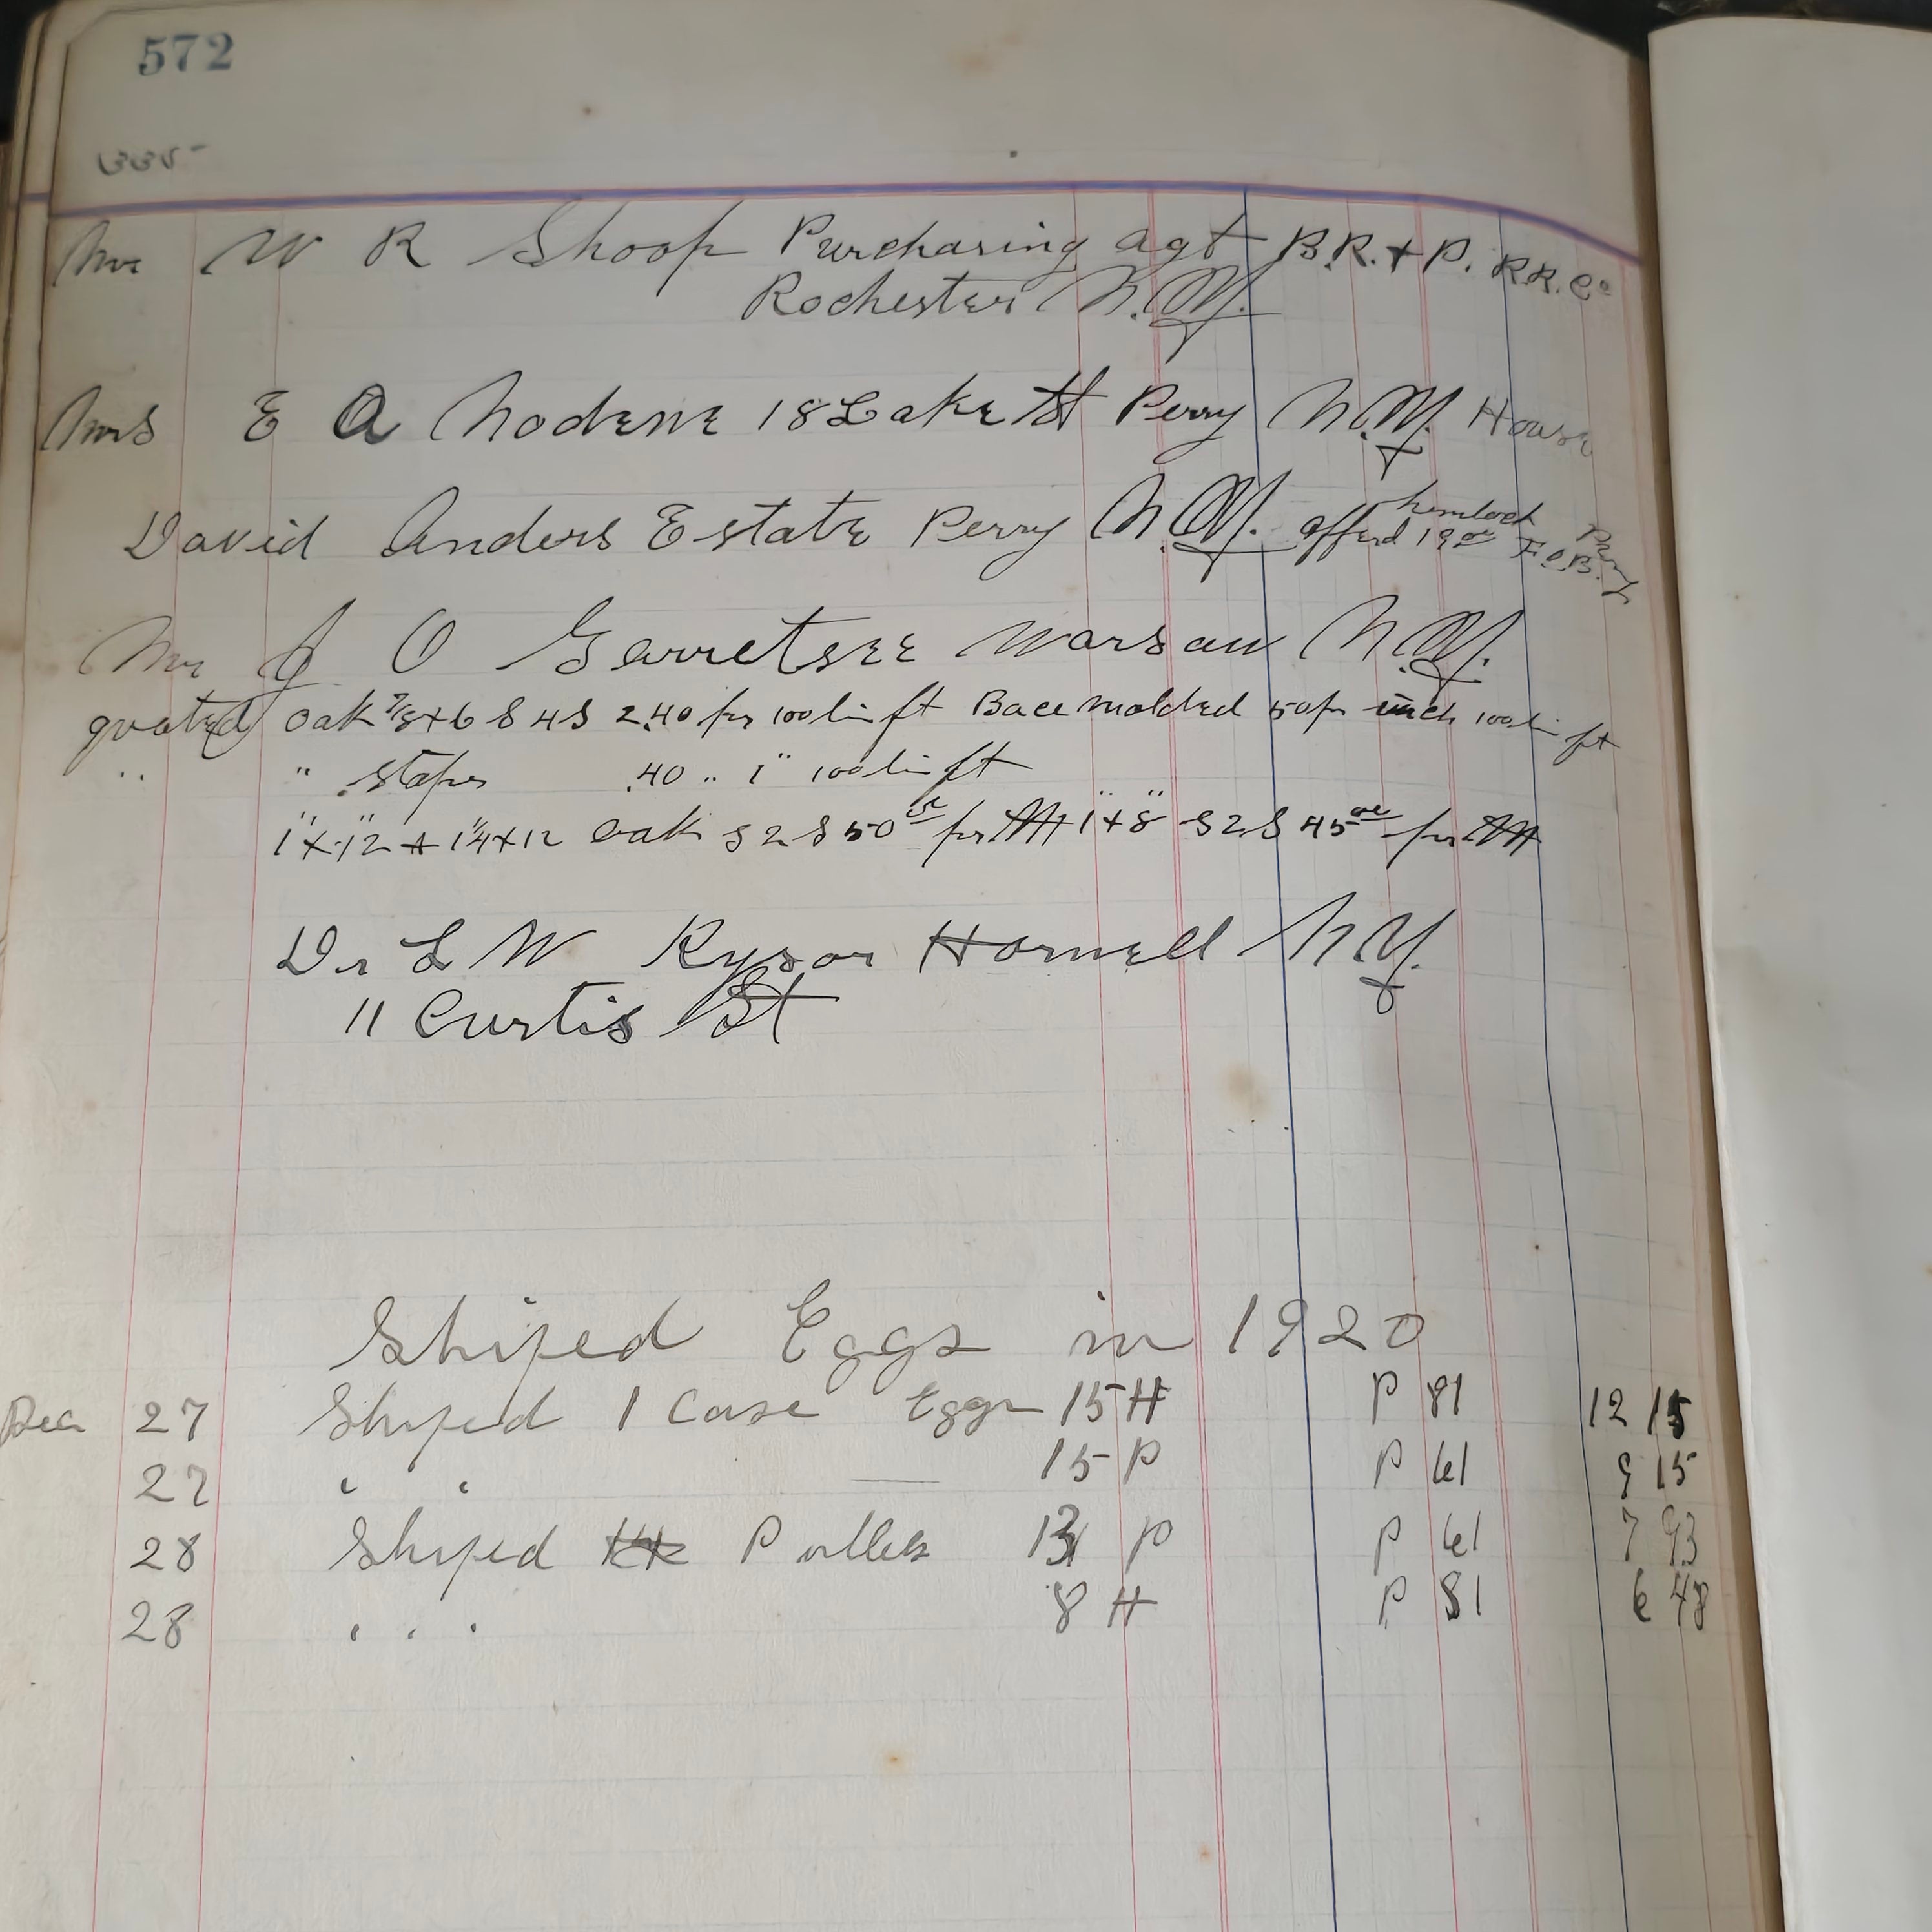 572
335
Mr W R Shoop Purchasing agt B.R. + P. R.R. Co
Rochester N.Y.
Mrs E A Nodene 18 Lake St Perry N.Y. House
David Anders Estate Perry N.Y. offerd hemlock 19 oo F.O.B. Perry
Mr J O Garretsee Warsaw N.Y.
quoted oak 7/8 x 6 S 4 S 2.40 per 100 lin ft Bace molded 50 per inch 100 lin ft
" " stops .40 " 1" 100 lin ft
1" x 12" + 1 1/4 x 12 oak S 2 S 50 oo per M 1" x 8" S 2 S 45 oo per M
Dr L W Kysor Hornell N.Y.
11 Curtis St
Shiped Eggs in 1920
Dec 27 Shiped 1 Case Eggs 15 H P 81 12 15
27 " " 15 P P 61 9 15
28 Shiped Pullets 13 P P 61 7 93
28 " " " 8 H P 81 6 48